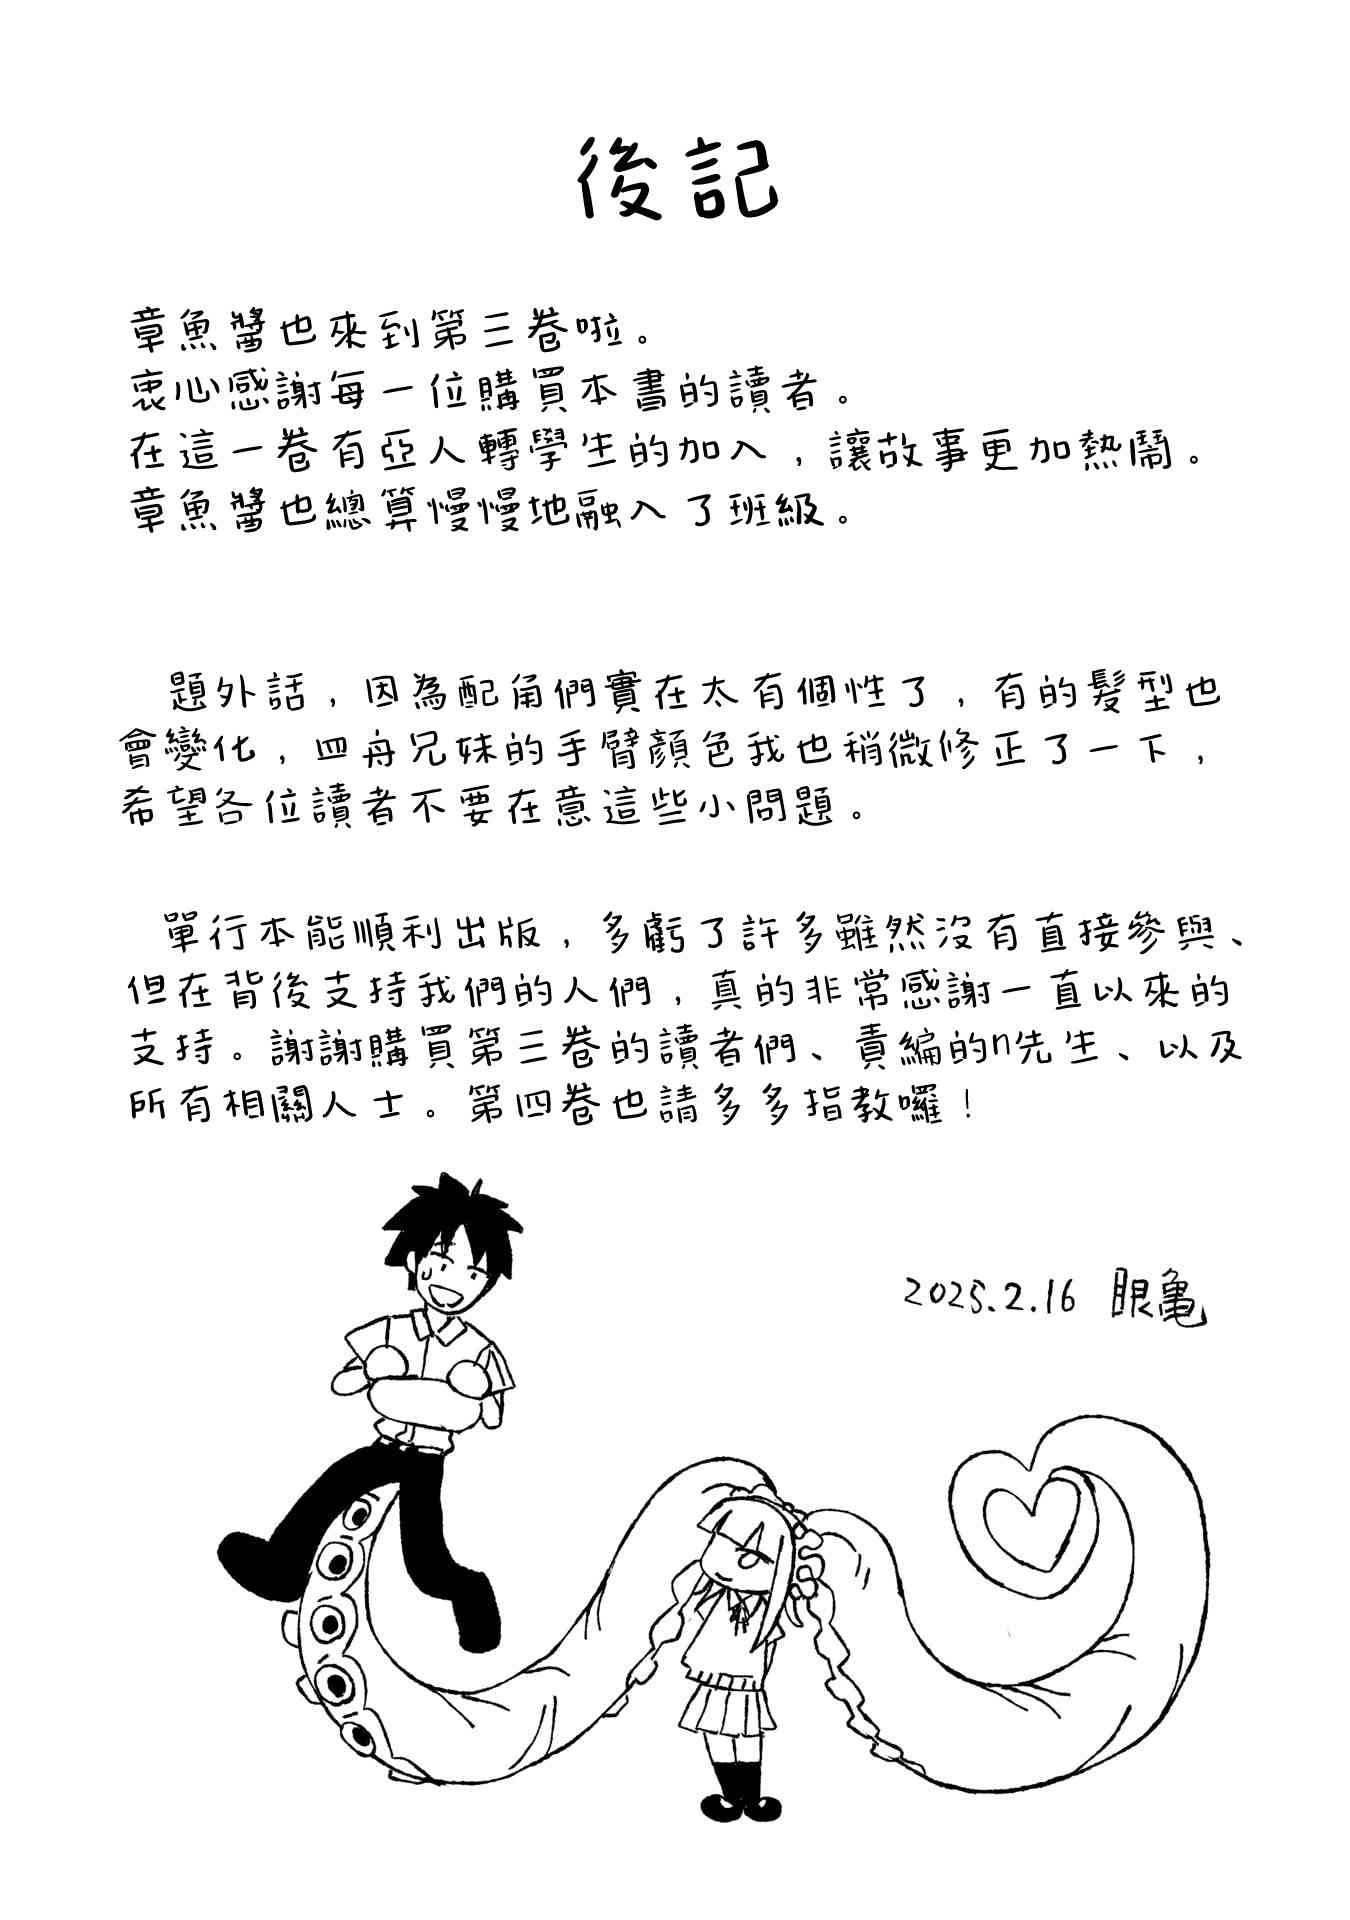 後記
章魚醬也來到第三卷啦。
衷心感謝每一位購買本書的讀者。
在這一卷有亞人轉學生的加入，讓故事更加熱鬧。
章魚醬也總算慢慢地融入了班級。
題外話，因為配角們實在太有個性了，有的髮型也
會變化，四舟兄妹的手臂顏色我也稍微修正了一下，
希望各位讀者不要在意這些小問題。
單行本能順利出版，多虧了許多雖然沒有直接參與、
但在背後支持我們的人們，真的非常感謝一直以來的
支持。謝謝購買第三卷的讀者們、責編的n先生、以及
所有相關人士。第四卷也請多多指教囉！
2025.2.16 眼亀